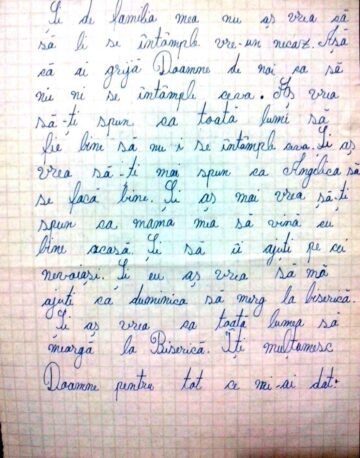 Și de familia mea nu aș vrea să
să li se întâmple vre-un necaz. Așă
că ai grijă Doamne de noi ca să
nu ni se întâmple ceva. Aș vrea
să-ți spun ca toată lumi să
fie bine să nu i se întâmple ceva. Și aș
vrea să-ți mai spun ca Angelica să
se facă bine. Și aș mai vrea să-ți
spun ca mama mea să vină cu
bine acasă Și să îi ajuți pe cei
nevoiași. Și eu aș vrea să mă
ajuti ca duminica să merg la biserică
Și aș vrea ca toată lumea să
meargă la Biserică. Iți multămesc
Doamne pentru tot ce mi-ai dat.